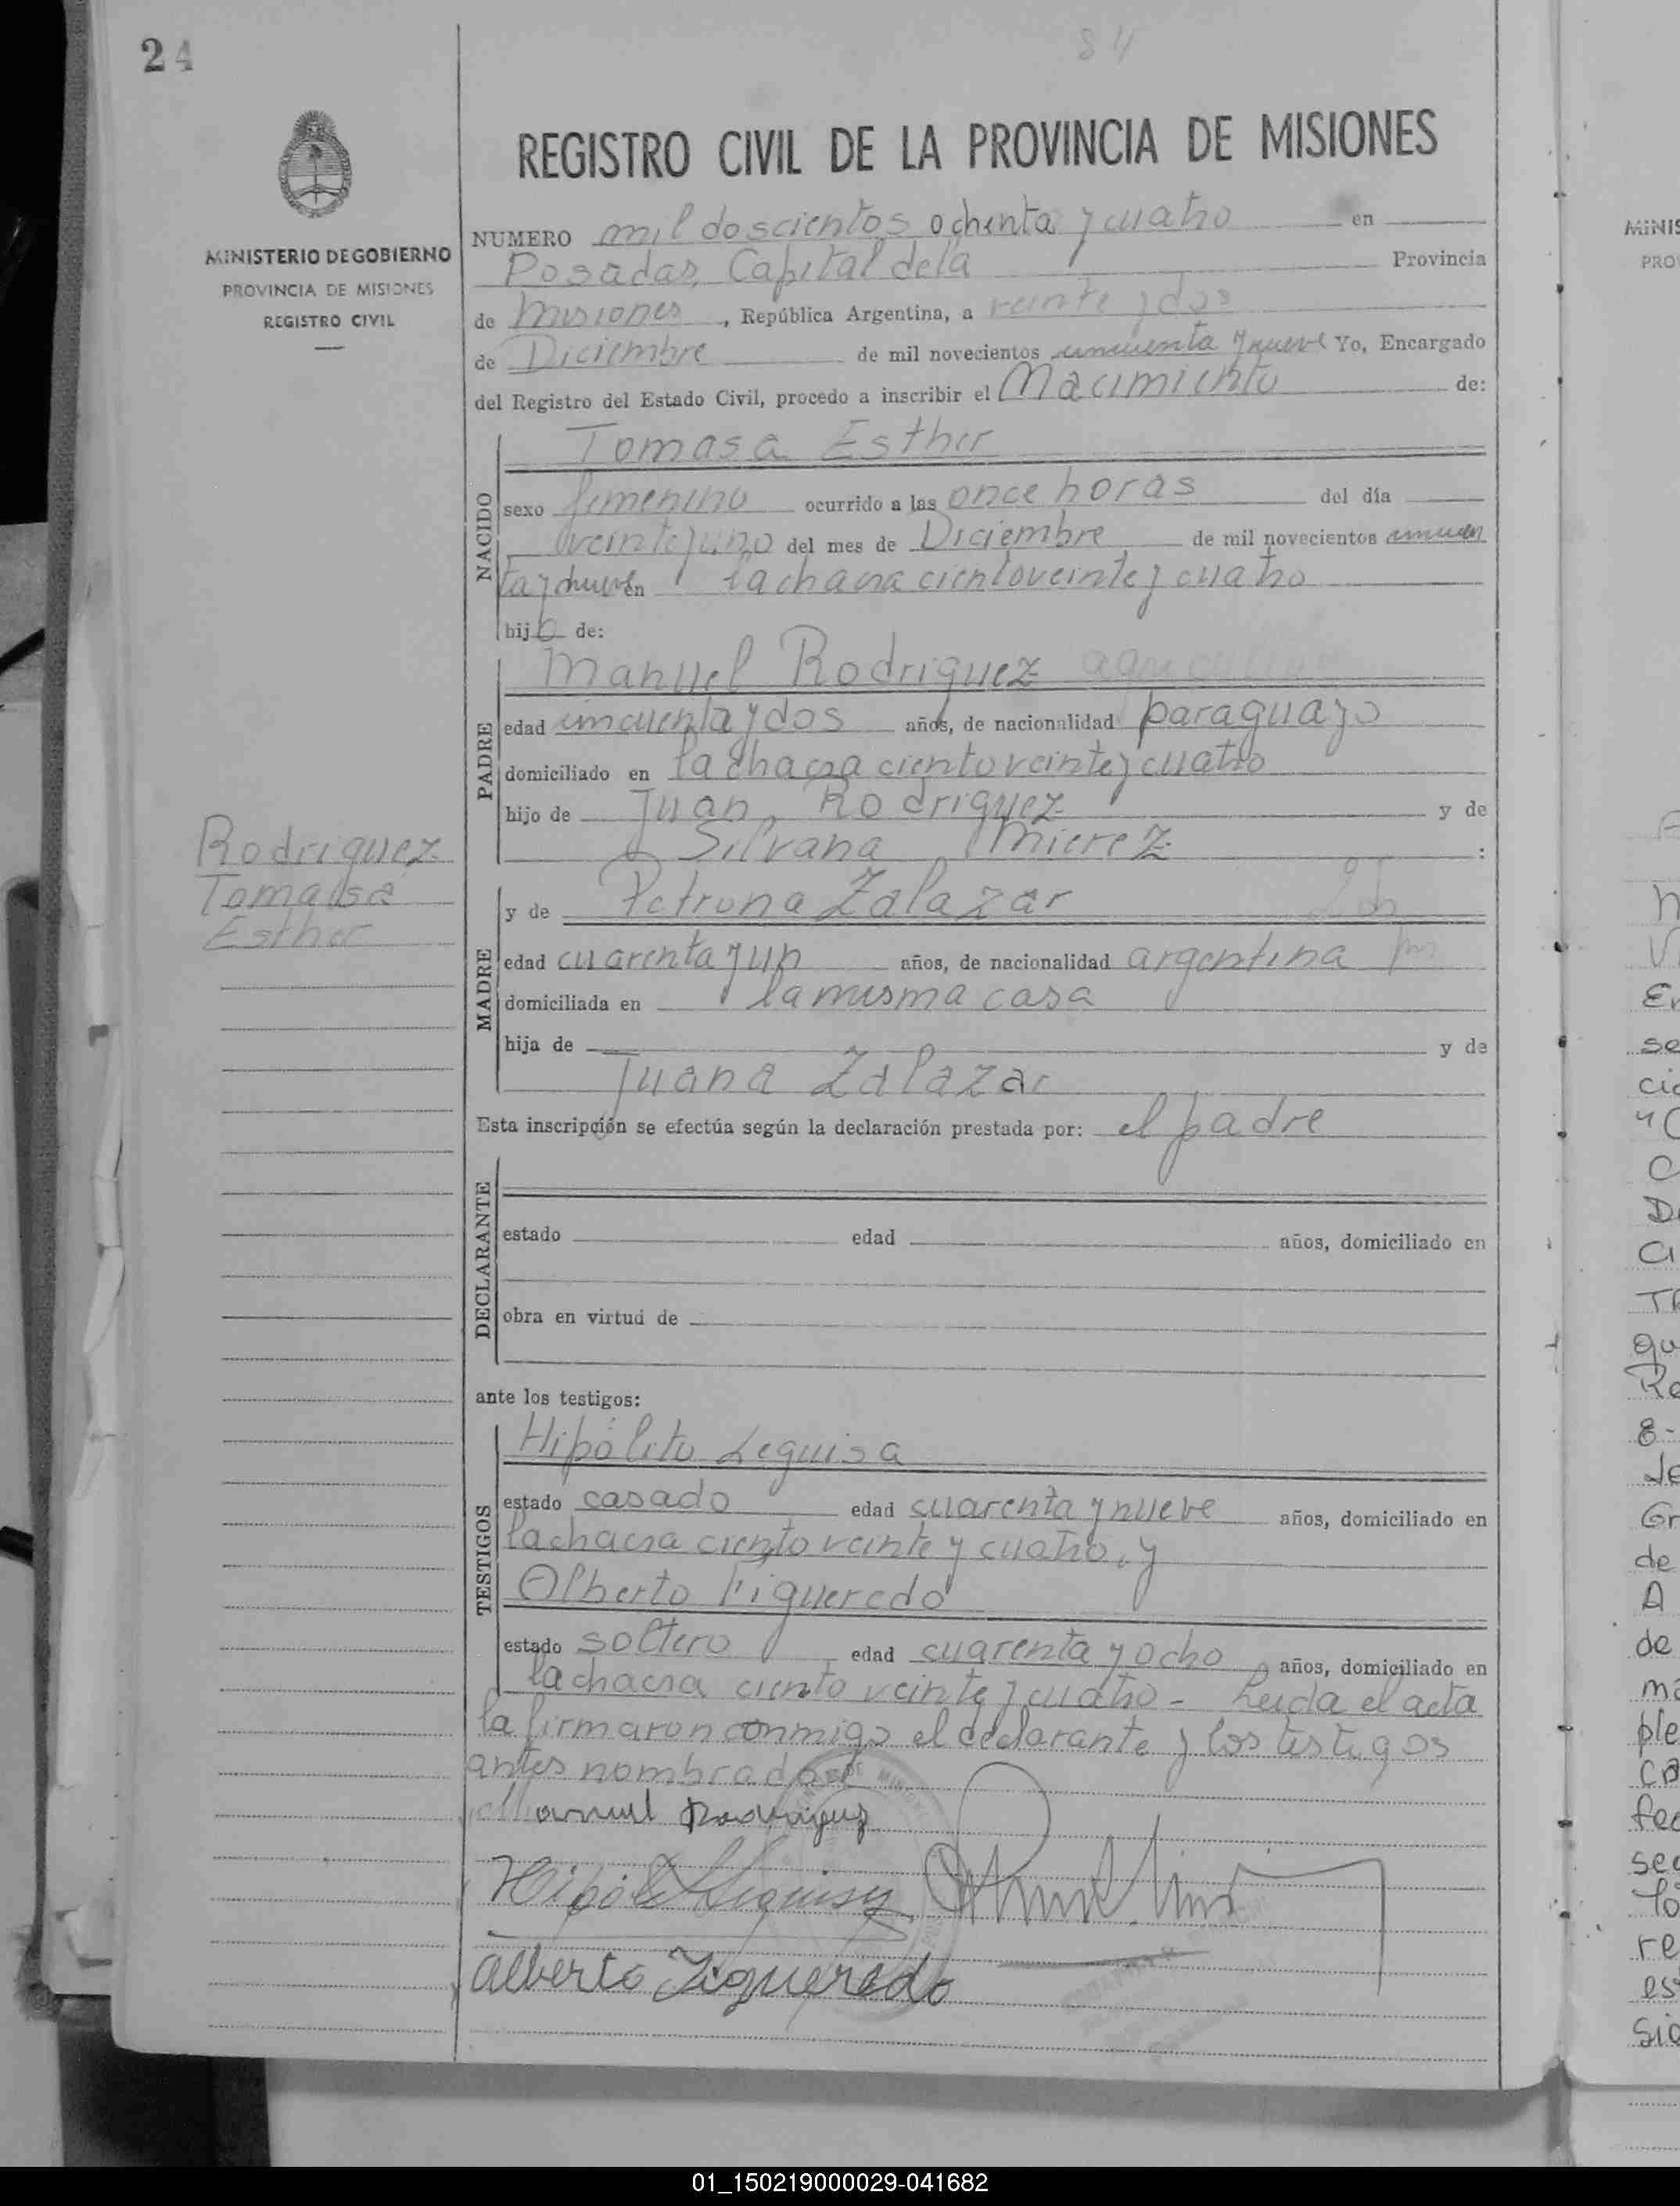 24
84
REGISTRO CIVIL DE LA PROVINCIA DE MISIONES
MINISTERIO DE GOBIERNO
PROVINCIA DE MISIONES
REGISTRO CIVIL
NUMERO mil doscientos ochenta y cuatro en
Posadas, Capital de la Provincia
de Misiones, República Argentina, a veinte y dos
de Diciembre de mil novecientos cincuenta y nueve Yo, Encargado
del Registro del Estado Civil, procedo a inscribir el Nacimiento de:
NACIDO
Tomasa Esther
sexo femenino ocurrido a las once horas del día
veinte y uno del mes de Diciembre de mil novecientos cincuen
ta y nueve en la chacra ciento veinte y cuatro
hija de:
PADRE
Manuel Rodriguez agricultor
edad cincuenta y dos años, de nacionalidad paraguayo
domiciliado en la chacra ciento veinte y cuatro
hijo de Juan Rodriguez y de
Silvana Mierez :
Rodriguez
Tomasa
Esther
MADRE
y de Petrona Zalazar
edad cuarenta y un años, de nacionalidad argentina
domiciliada en la misma casa
hija de y de
Juana Zalazar
Esta inscripción se efectúa según la declaración prestada por: el padre
DECLARANTE
estado edad años, domiciliado en
obra en virtud de
ante los testigos:
TESTIGOS
Hipólito Leguisa
estado casado edad cuarenta y nueve años, domiciliado en
la chacra ciento veinte y cuatro, y
Alberto Figueredo
estado soltero edad cuarenta y ocho años, domiciliado en
la chacra ciento veinte y cuatro - Leida el acta
la firmaron conmigo el declarante y los testigos
antes nombrados
Manuel Rodriguez
Hipólito Leguisa
Alberto Figueredo
01_150219000029-041682